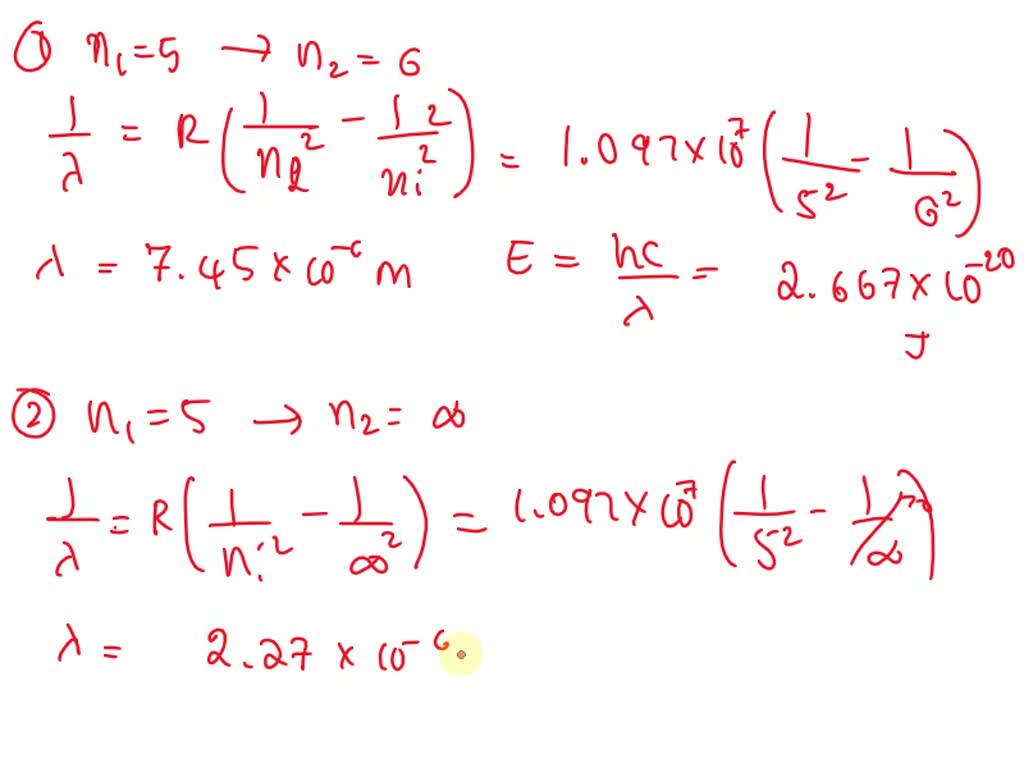 ① n₁ = 5 → n₂ = 6
1/λ = R(1/n₂² - 12/nᵢ²) = 1.097 × 10⁷ (1/5² - 1/6²)
λ = 7.45 × 10⁻⁶ m E = hc/λ = 2.667 × 10⁻²⁰ J
② n₁ = 5 → n₂ = ∞
1/λ = R(1/nᵢ² - 1/∞²) = 1.097 × 10⁷ (1/5² - 1/∞)
λ = 2.27 × 10⁻⁶